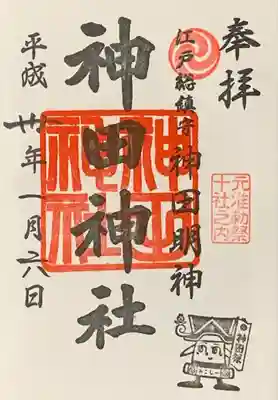 奉拝
元准勅祭
十社之内
江戸総鎮守
神田明神
神田神社
神田
神社
平成卅年一月六日
神田祭
みこしー